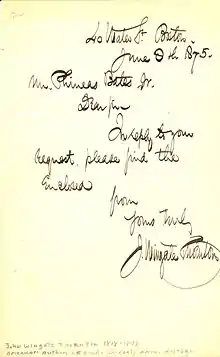 20 State St. Boston.
June 9th 1875.
Mr. Phineas Bates Jr.
Dear Sir
In reply to your
request, please find the
Enclosed
from
Yours truly,
J. Wingate Thornton
John Wingate Thornton 1818-1878
American author